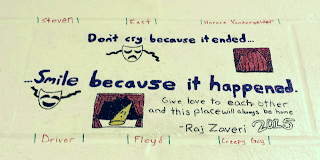 Steven East Horace Vandergelder
Don't cry because it ended...
...Smile because it happened.
Give love to each other
and this place will always be home
-Raj Zaveri 2015
Driver Floyd Creepy Guy